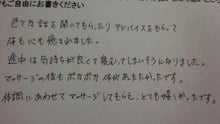 もご自由にお書きください
色々な話を聞いてもらったり アドバイスをもらって
体も心も癒されました。
途中は気持ちが良くて寝むてしまいそうになりました。
マッサージの後もポカポカ体があたたかったです。
体調にあわせてマッサージしてもらえ、とても嬉しかったです。